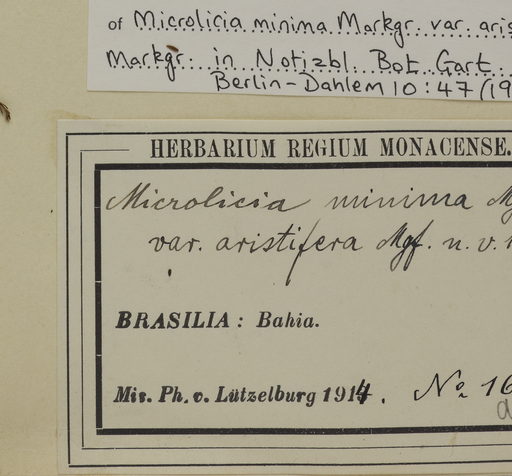 of Microlicia minima Markgr. var. aris
Markgr. in Notizbl. Bot. Gart.
Berlin-Dahlem 10:47 (19
HERBARIUM REGIUM MONACENSE.
Microlicia minima Mg
var. aristifera Mgf. n. v.
BRASILIA: Bahia.
Mis. Ph. v. Lützelburg 1914. No. 16